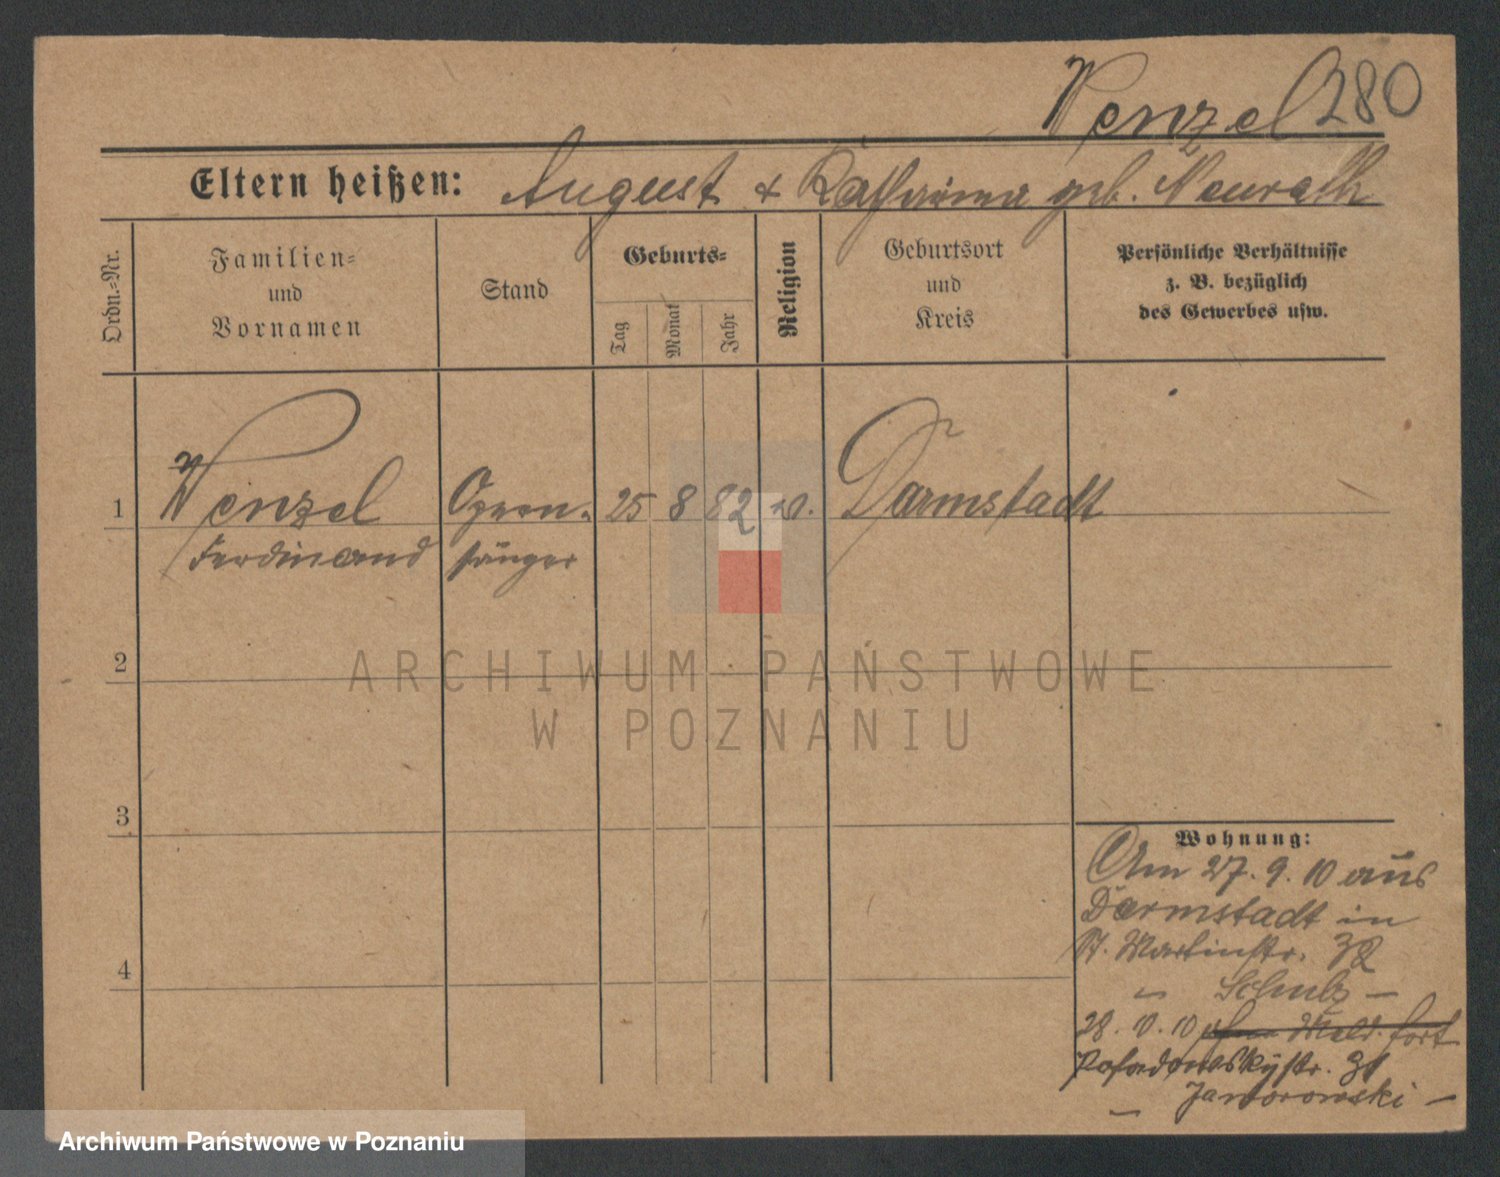 Wenzel 280
Eltern heißen: August & Katharina geb. Neurath
Ordn.-Nr.
Familien-
und
Vornamen
Stand
Geburts-
Tag
Monat
Jahr
Religion
Geburtsort
und
Kreis
Persönliche Verhältnisse
z. B. bezüglich
des Gewerbes usw.
1 Wenzel Opern- 25 8 82 Darmstadt
Ferdinand sänger
2
3
4
Wohnung:
Am 27. 9. 10 aus
Darmstadt in
St. Martinstr. 32
– Schulz –
28. 10. 10 ohne Meld. fort
Posadowskystr. 31
– Jaworowski –
ARCHIWUM PAŃSTWOWE
W POZNANIU
Archiwum Państwowe w Poznaniu